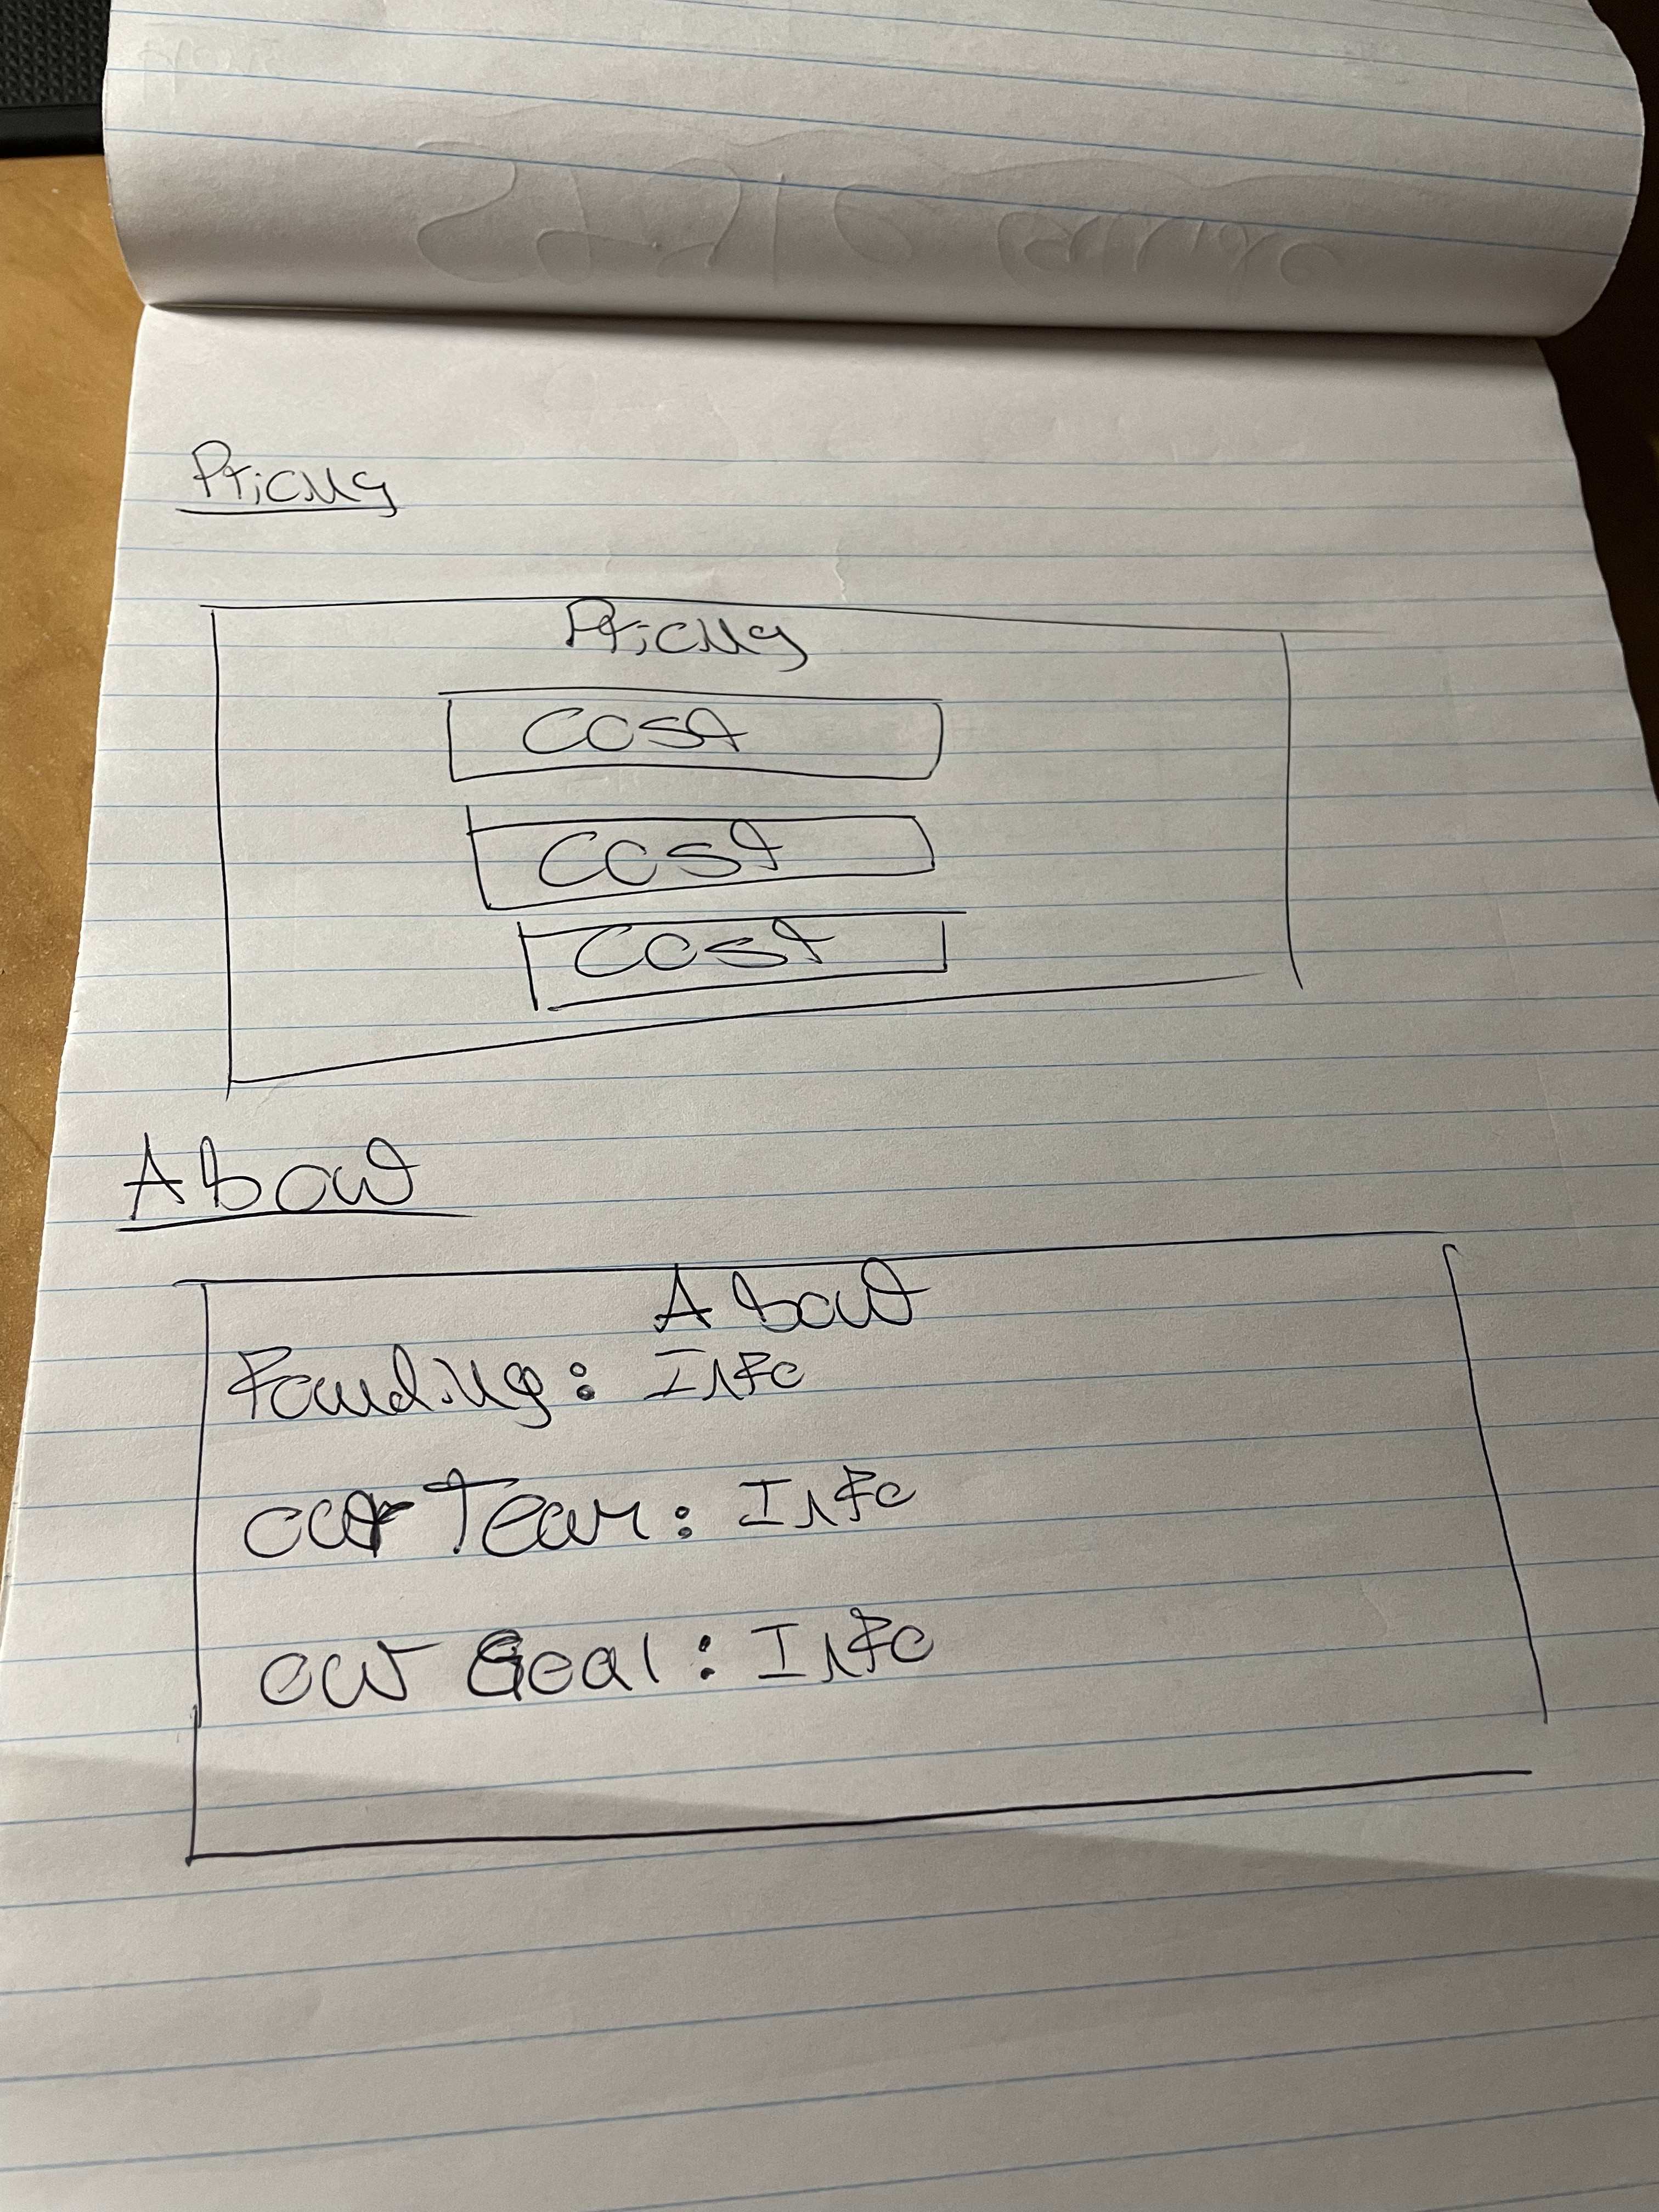 Pricing
Pricing
Cost
Cost
Cost
About
About
Founding: Info
Our Team: Info
Our Goal: Info